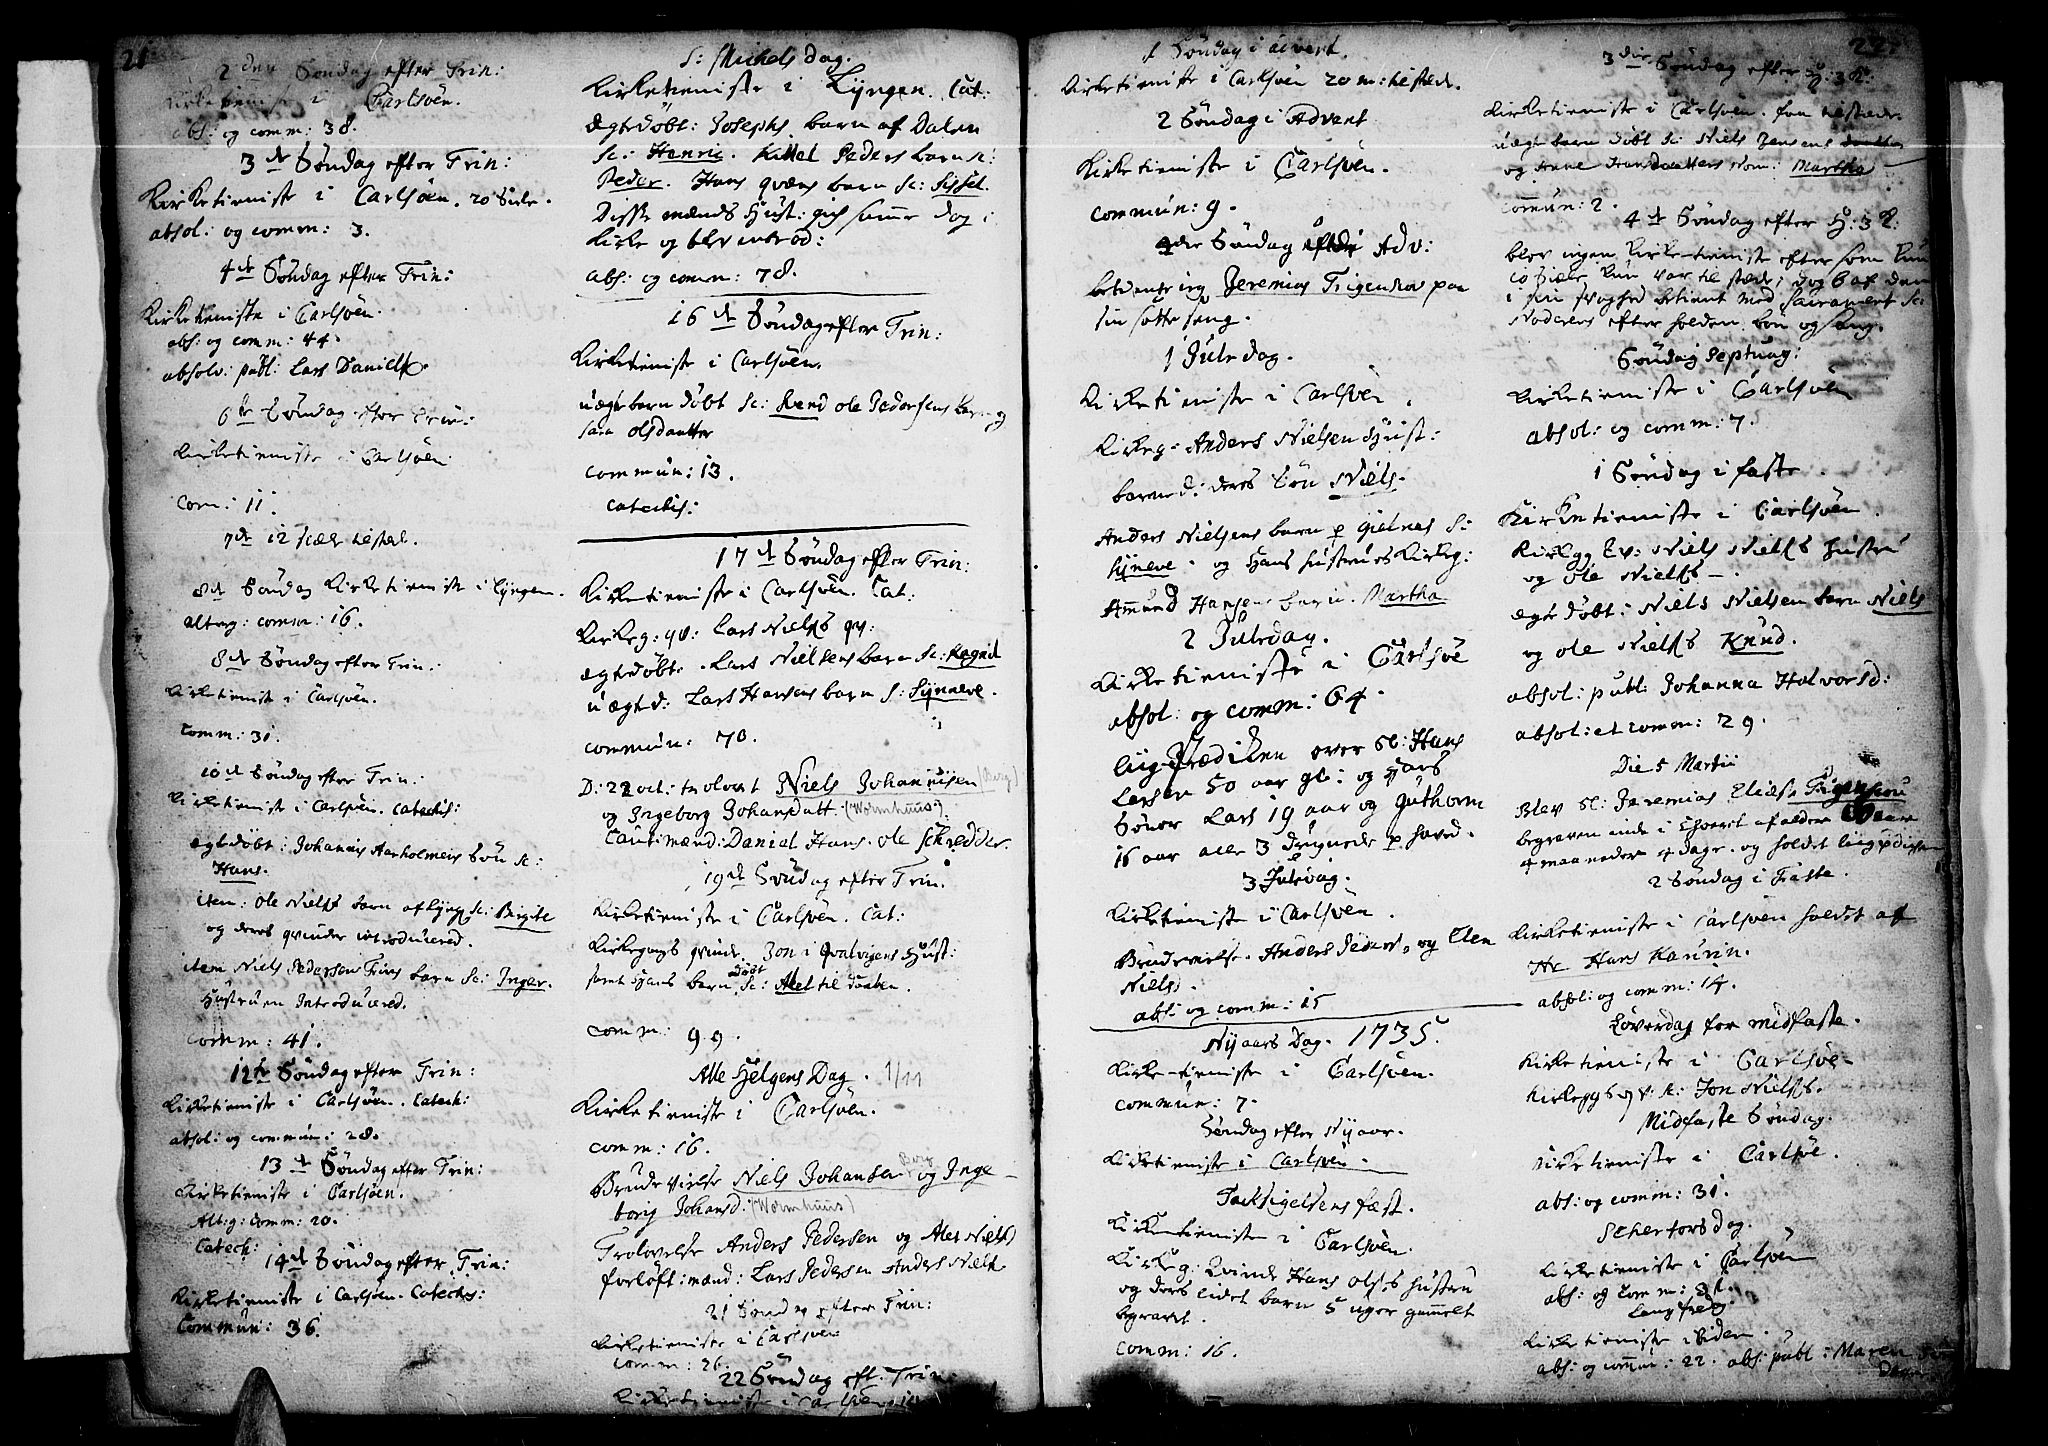 21
2 den Søndag efter Trin:
Kirketieniste i Carlsöen.
abs: og comm: 38.
3 de Söndag efter Trin:
Kirketieniste i Carlsöen. 20 Siele.
absol: og comm: 3.
4 de Söndag efter Trin:
Kirketieniste i Carlsöen.
abs: og comm: 44.
absolv: publ: Lars Daniels.
6 te Söndag efter Trin:
Kirketieniste i Carlsöen
Com: 11.
7 de 12 siæle tilstede.
8 de Söndag Kirketieniste i Lyngen.
alterg: comm: 16.
8 de Söndag efter Trin:
Kirketieniste i Carlsöen.
Comm: 31.
10 de Söndag efter Trin:
Kirketieniste i Carlsöen. Catechis:
egte döbt: Johannis Aarholmens Sön N:
Hans.
item: Ole Niels barn af Lyng N: Birgite
og deres qvinder introducered.
item Niels Pedersen barn N: Inger.
Hustruen Introducered.
Comm: 41.
12 te Söndag efter Trin:
Kirketieniste i Carlsöen. Catech:
absol: og commun: 28.
13 de Söndag efter Trin:
Kirketieniste i Carlsöen.
Alt:g: Comm: 20.
Catech:
14 de Söndag efter Trin:
Kirketieniste i Carlsöen. Catechis:
Commun: 36.
S: Michels dag.
Kirketieniste i Lyngen. Cat:
ægte döbt: Josephs barn af Dalen
N: Henric. Kittel Peders barn N:
Peder. Hans qvæns barn N: Sissel.
Disse mænds Hust: gich samme dag i
Kirke og blev introd:
abs: og comm: 78.
16 de Söndag efter Trin:
Kirketieniste i Carlsöen.
uægte barn döbt N: Svend Ole Pedersens barn og
Sara Olsdaatter
commun: 13.
catechis:
17 de Söndag efter Trin:
Kirketieniste i Carlsöen. Cat:
Kirkeg: qv: Lars Niels qv:
egte döbt. Lars Nielsens barn N: Ragnil
uægte d: Lars Hansens barn N: Synneve.
commun: 70.
D: 22 oct: trolovet Niels Johannisen (Berg)
og Ingeborg Johansdatt. (Wormhuus).
Cautimænd: Daniel Hans. Ole Schrædder.
19 de Söndag efter Trin.
Kirketieniste i Carlsöen. Cat:
Kirkegangs qvinde. Jon i qvalvigens Hust:
samt hans barn döbt N: Alet til daaben.
comm: 99.
Alle Helgens Dag. 1/11
Kirketieniste i Carlsöen.
comm: 16.
Brudevielse Niels Johansen Berg og Inge-
borg Johansd: (Wormhuus)
Trolovelse Anders Pedersen og Alet Niels
forlöft: mænd: Lars Pedersen Anders Niels
21 Sönd ag efter Trin:
Kirketieniste i Carlsöen
comm: 26.
22 Söndag eft. Trin.
Kirketieniste i Carlsöen
1 Söndag i advent.
Kirketieniste i Carlsöen 20 m: tilstede.
2 Söndag i Advent
Kirketieniste i Carlsöen.
commun: 9.
3die Söndag i Adv:
betiente ieg Jeremias Figenschou paa
sin sotte seng.
1 Juledag.
Kirketieniste i Carlsöen.
Kirkeg: Anders Nielsen Hust:
barne d: deres Sön Niels.
Anders Nielsens barn p Gielnes N:
Syneve. og Hans hustrues Kirkeg:
Amund Hansens barn. Martha
2 Juledag.
Kirketieniste i Carlsöe
absol: og comm: 64.
Liigprædiken over Sl: Hans
Larsen 50 aar gl: og hans
Sönner Lars 19 aar og Guthorm
16 aar alle 3 druknede p haved.
3 Juledag.
Kirketieniste i Carlsöen.
Brudevielse. Anders Peders. og Elen
Niels.
abs: og comm: 15
Nyaars Dag. 1735.
Kirke-tieniste i Carlsöen.
commun: 7.
Söndag efter Nyaar.
Kirketieniste i Carlsöen.
Tacksigelsens fæst.
Kirketieniste i Carlsöen.
Kirkeg: Qvinde Hans Olsens hustru
og deres lidet barn 5 uger gammelt
begravet.
comm: 16.
22
3die Söndag efter H: 3 K:
Kirketieniste i Carlsöen. faa tilstede.
uægte barn döbt N: Niels Jensens
og Anne Hansdaatters Nom: Martha
commun: 2.
4 de Söndag efter H: 3 K:
blev ingen Kirke-tieniste efter som kun
10 siæle kun var til stede, dog 6 af dem
i sin svaghed betient med Sacrament N:
efter holden bön og sang.
Söndag Septuag:
Kirketieniste i Carlsöen
absol: og comm: 7.
1 Söndag i faste.
Kirketieniste i Carlsöen.
Kirkeg: Qv: Niels Niels hustru
og Ole Niels -.
ægte döbt: Niels Nielsen barn Niels
og Ole Niels Knud.
absol: publ: Johanna Halvorsd:
absol: et comm: 29.
Die 5 Martii
Blev Sl: Jeremias Eliæs. Figenschou
begraven inde i Choret af alder aar
4 maaneder 4 dage. og holdet liigprædiken
2 Söndag i Faste.
Kirketieniste i Carlsöen holdet af
Hr Hans Kaurin.
absol: og comm: 14.
Löverdag for midfaste.
Kirketieniste i Carlsöe
Kirkegangs qv: N: Jon Niels.
Midfaste Söndag.
Kirketieniste i Carlsöe.
abs: og comm: 31.
Schertorsdag.
Kirketieniste i Carlsöen
abs: og Comm:
Langfred
Kirketieniste ibidem.
abs: og comm: 22. abs: publ: Maren